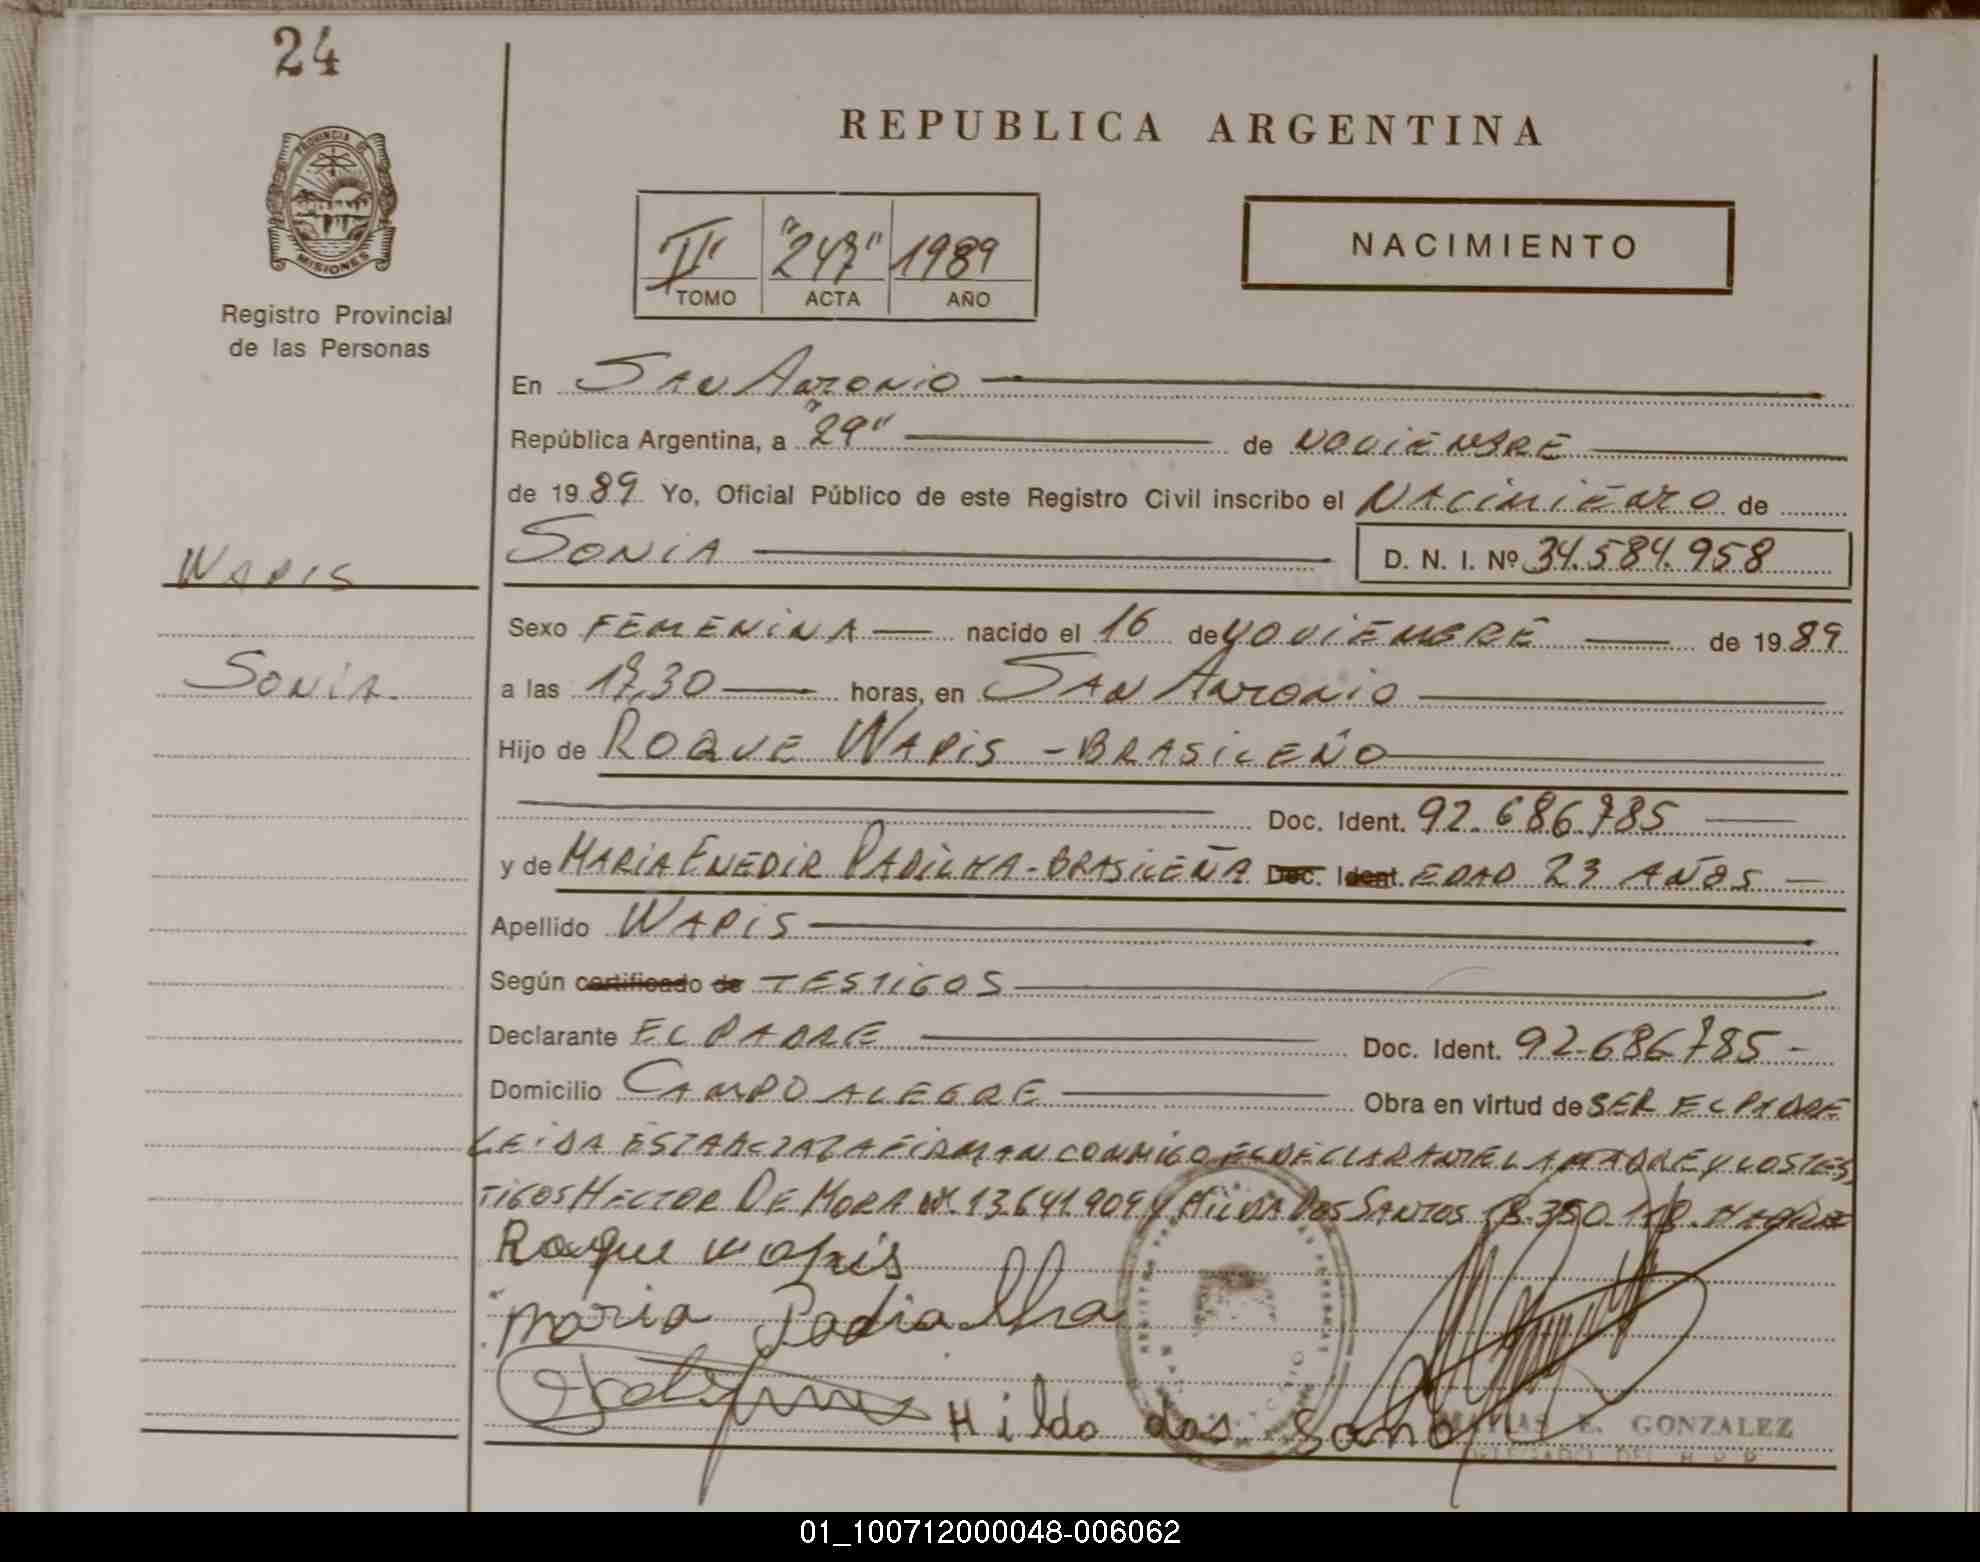 24
REPUBLICA ARGENTINA
PROVINCIA DE
MISIONES
Registro Provincial
de las Personas
II "247" 1989
TOMO ACTA AÑO
NACIMIENTO
En SAN ANTONIO
República Argentina, a "29" de NOVIEMBRE
de 1989 Yo, Oficial Público de este Registro Civil inscribo el NACIMIENTO de
WAPIS
SONIA D. N. I. Nº 34.584.958
Sexo FEMENINA nacido el 16 de NOVIEMBRE de 1989
SONIA.
a las 17,30 horas, en SAN ANTONIO
Hijo de ROQUE WAPIS - BRASILEÑO
Doc. Ident. 92.686.785
y de MARIA ENEDIR PADILHA - BRASILEÑA Doc. Ident. EDAD 23 AÑOS
Apellido WAPIS
Según certificado de TESTIGOS
Declarante EL PADRE Doc. Ident. 92.686.785 -
Domicilio CAMPO ALEGRE Obra en virtud de SER EL PADRE
LEIDA ESTA ACTA LA FIRMAN CONMIGO EL DECLARANTE LA MADRE Y LOS TES
TIGOS HECTOR DE MORA 13.641.909 Y HILDA DOS SANTOS
Roque wapis
maria Padialha
Hilda dos Santo
MATIAS E. GONZALEZ
DELEGADO DEL R P P
01_100712000048-006062